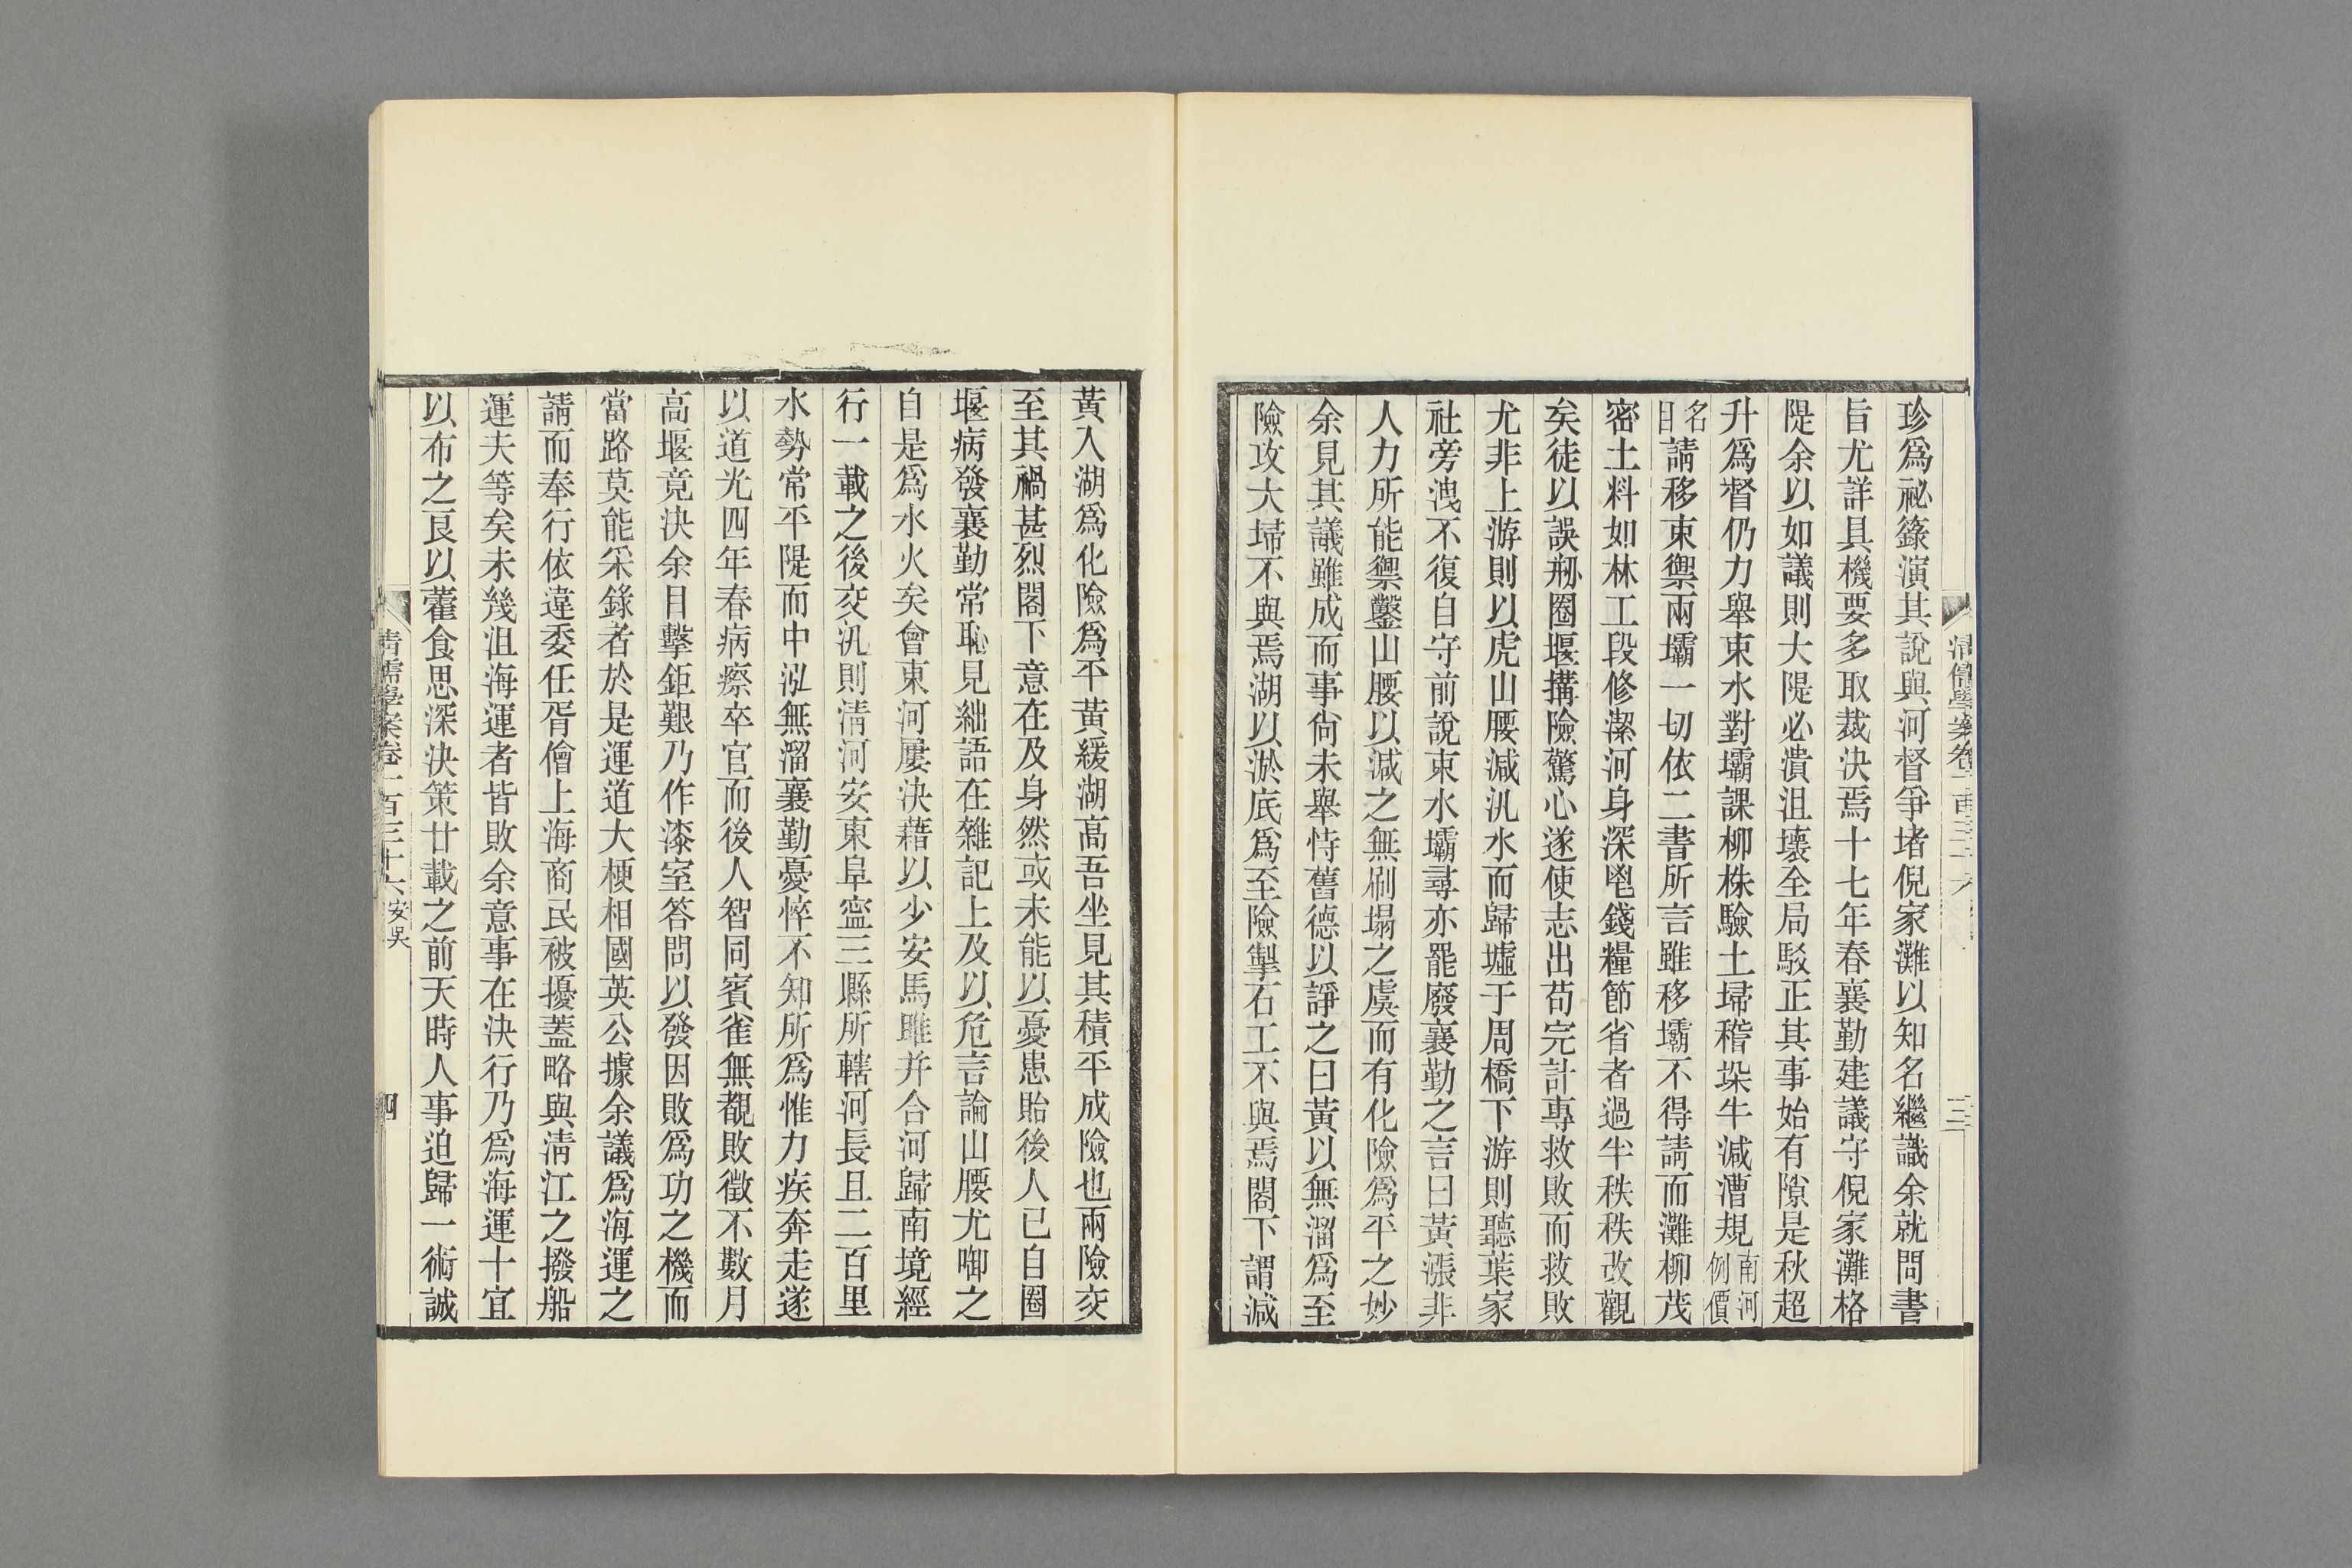 珍爲祕籙演其說與河督爭堵倪家灘以知名繼識余就問書
旨尤詳具機要多取裁決焉十七年春襄勤建議守倪家灘格
隄余以如議則大隄必潰沮壞全局駁正其事始有隙是秋超
升爲督仍力舉束水對壩課柳株驗土埽稽垜牛減漕規南河例價
名目請移束禦兩壩一切依二書所言雖移壩不得請而灘柳茂
密土料如林工段修潔河身深鬯錢糧節省者過半秩秩改觀
矣徒以誤刱圈堰搆險驚心遂使志出苟完計專救敗而救敗
尤非上游則以虎山腰減汎水而歸墟于周橋下游則聽葉家
社旁洩不復自守前說束水壩尋亦罷廢襄勤之言曰黃漲非
人力所能禦鑿山腰以減之無刷塌之虞而有化險爲平之妙
余見其議雖成而事尙未舉恃舊德以諍之曰黃以無溜爲至
險攻大埽不與焉湖以淤底爲至險掣石工不與焉閣下謂減
清儒學案卷一百三十六
三
黃入湖爲化險爲平黃緩湖高吾坐見其積平成險也兩險交
至其禍甚烈閣下意在及身然或未能以憂患貽後人已自圈
堰病發襄勤常恥見絀語在雜記上及以危言論山腰尤啣之
自是爲水火矣會東河屢決藉以少安馬雎并合河歸南境經
行一載之後交汎則淸河安東阜寍三縣所轄河長且二百里
水勢常平隄而中泓無溜襄勤憂悴不知所爲惟力疾奔走遂
以道光四年春病瘵卒官而後人智同賓雀無覩敗徵不數月
高堰竟決余目擊鉅艱乃作漆室答問以發因敗爲功之機而
當路莫能采錄者於是運道大梗相國英公據余議爲海運之
請而奉行依違委任胥儈上海商民被擾蓋略與淸江之撥船
運夫等矣未幾沮海運者皆敗余意事在決行乃爲海運十宜
以布之良以藿食思深決策廿載之前天時人事迫歸一術誠
清儒學案卷一百三十六 安吳
四